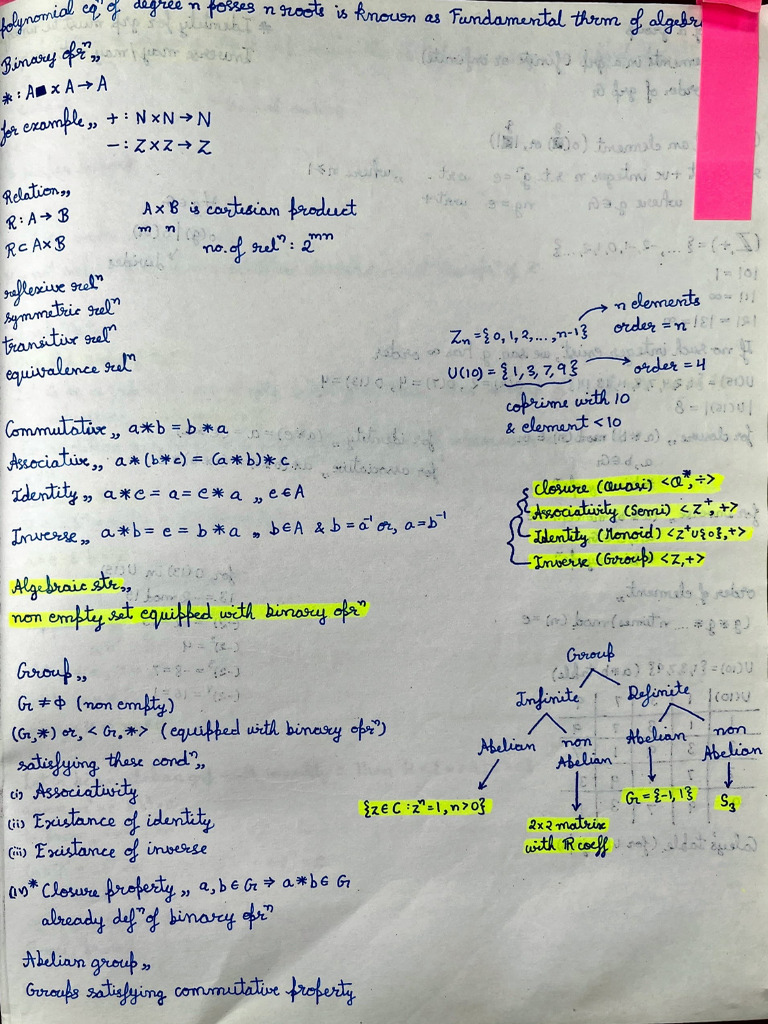 polynomial eqⁿ of degree n posses n roots is known as Fundamental thrm of algebr
Binary oprⁿ,,
* : A x A → A
for example,, + : N x N → N
− : Z x Z → Z
Relation,,
R : A → B
A x B is cartesian product
R ⊂ A x B
m n
no. of relⁿ : 2^mn
reflexive relⁿ
symmetric relⁿ
transitive relⁿ
equivalence relⁿ
Zn = {0, 1, 2, ..., n-1} → n elements
order = n
U(10) = {1, 3, 7, 9} → order = 4
coprime with 10
& element < 10
Commutative,, a * b = b * a
Associative,, a * (b * c) = (a * b) * c
Identity,, a * e = a = e * a ,, e ∈ A
Inverse,, a * b = e = b * a ,, b ∈ A & b = a⁻¹ or, a = b⁻¹
Closure (Quasi) <Q*, ÷>
Associativity (Semi) <Z⁺, +>
Identity (Monoid) <Z⁺ ∪ {0}, +>
Inverse (Group) <Z, +>
Algebraic str,,
non empty set equipped with binary oprⁿ
Group,,
G ≠ ϕ (non empty)
(G, *) or, <G, *> (equipped with binary oprⁿ)
satisfying these condⁿ,,
(i) Associativity
(ii) Existance of identity
(iii) Existance of inverse
(iv)* Closure property,, a, b ∈ G ⇒ a * b ∈ G
already defⁿ of binary oprⁿ
Abelian group,,
Groups satisfying commutative property
Group
Infinite Definite
Abelian non Abelian Abelian non Abelian
{z ∈ C : zⁿ = 1, n > 0}
2 x 2 matrix
with R coeff
G = {-1, 1}
S₃